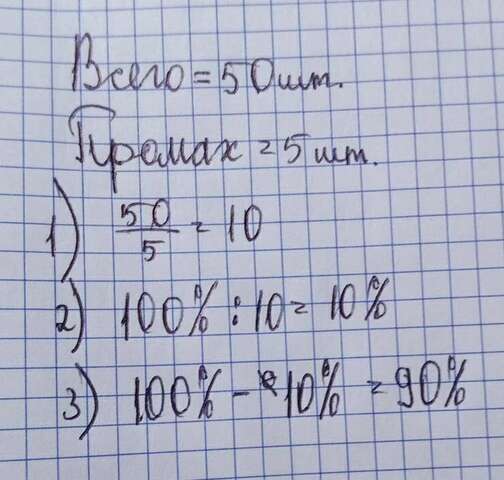 Всего = 50 шт.
Промах = 5 шт.
1) 50/5 = 10
2) 100% : 10 = 10%
3) 100% - 10% = 90%